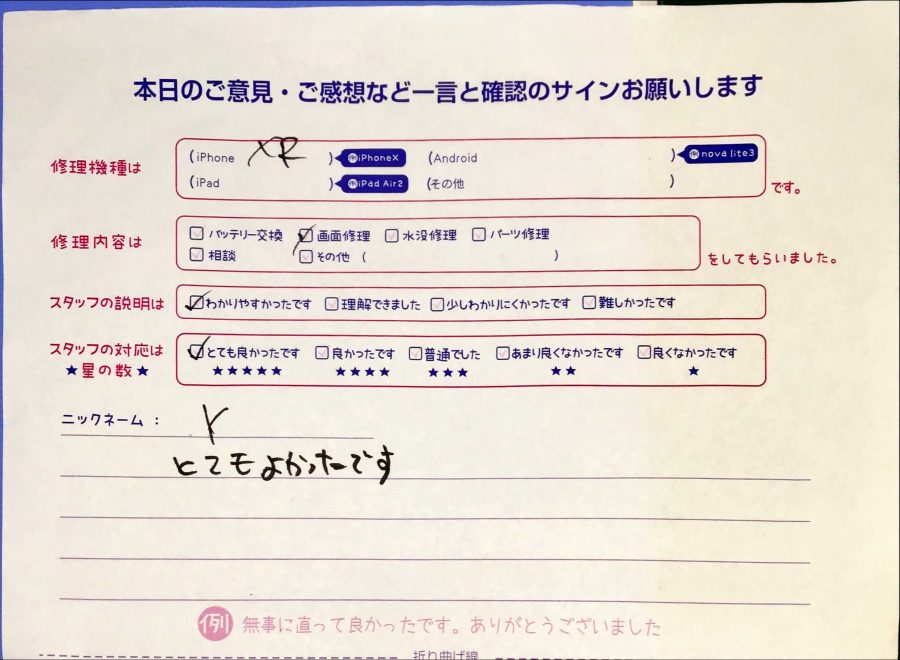 本日のご意見・ご感想など一言と確認のサインお願いします
修理機種は (iPhone XR ) 例iPhoneX (Android ) 例nova lite3
(iPad ) 例iPad Air2 (その他 ) です。
修理内容は バッテリー交換 画面修理 水没修理 パーツ修理
相談 その他 ( ) をしてもらいました。
スタッフの説明は わかりやすかったです 理解できました 少しわかりにくかったです 難しかったです
スタッフの対応は とても良かったです 良かったです 普通でした あまり良くなかったです 良くなかったです
★星の数★ ★★★★★ ★★★★ ★★★ ★★ ★
ニックネーム： Y
とてもよかったです
例 無事に直って良かったです。ありがとうございました
折り曲げ線